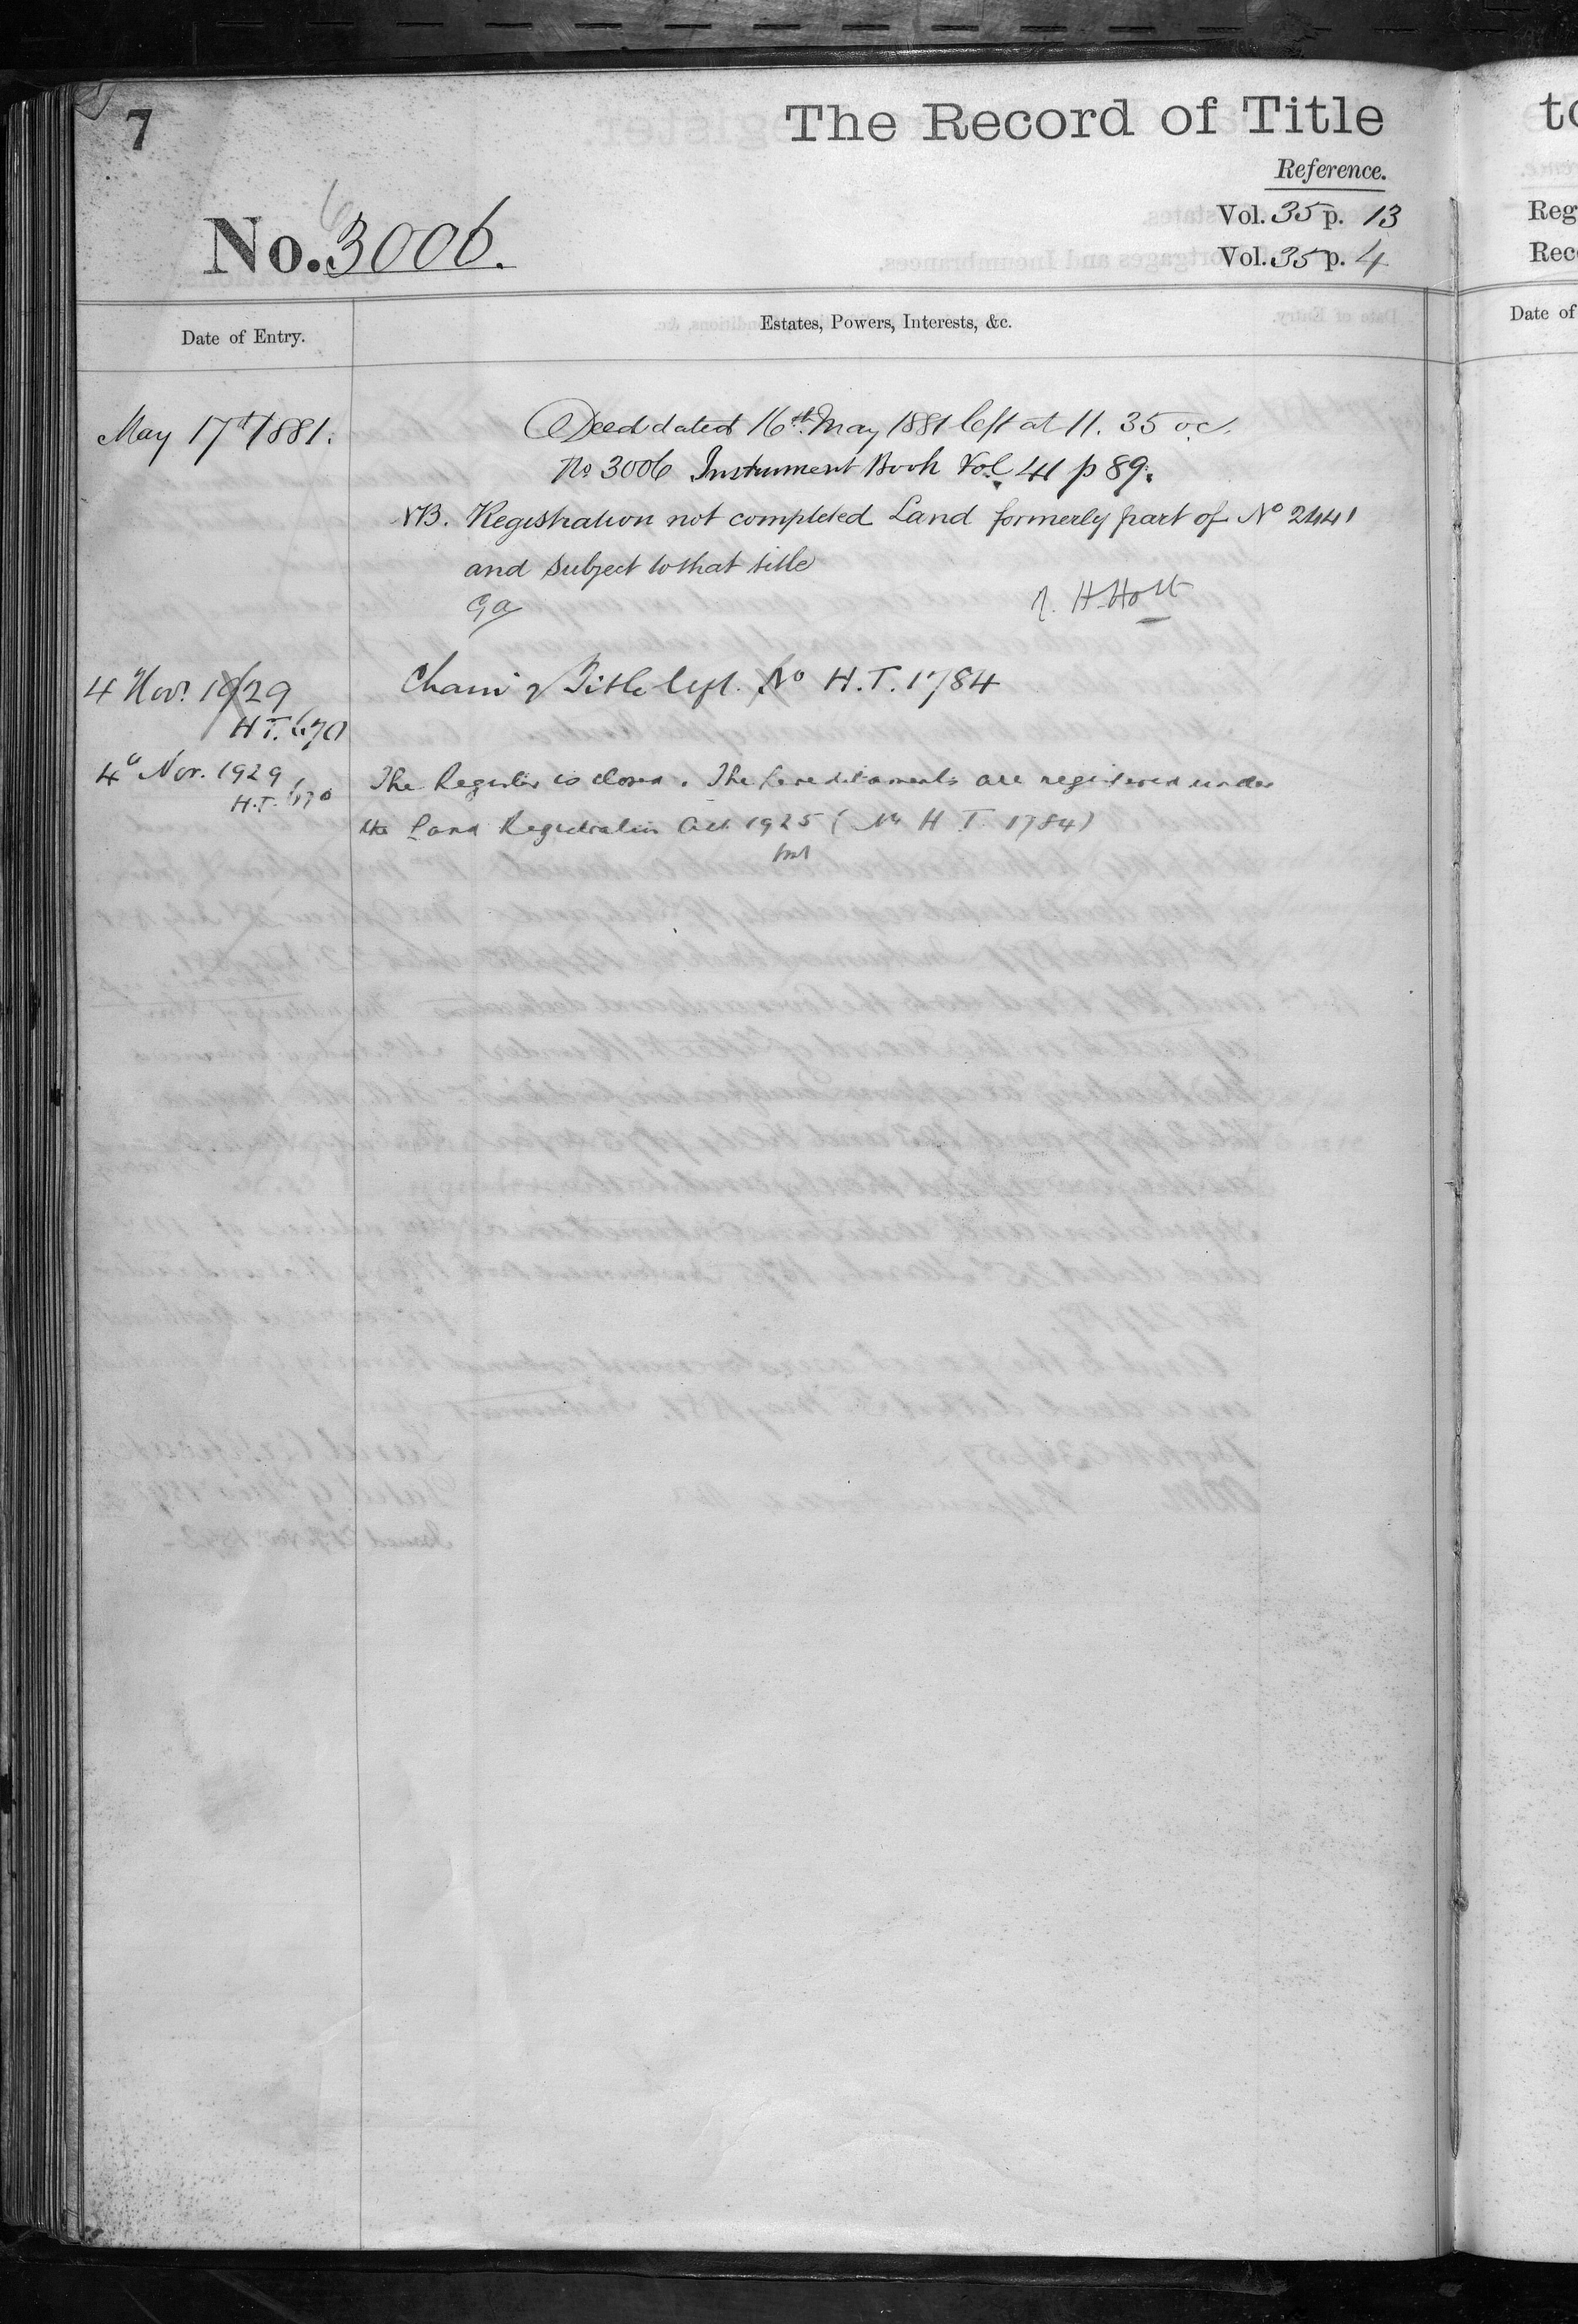 7
The Record of Title
Reference.
No. 3006.
Vol. 35 p. 13
Vol. 35 p. 4
Date of Entry.
Estates, Powers, Interests, &c.
May 17th 1881.
Deed dated 16th May 1881 left at 11. 35 oc.
No 3006 Instrument Book Vol. 41 p 89.
NB. Registration not completed Land formerly part of No 2441
and subject to that title
H. Holt
4 Nov. 1929
H.T. 670
Title No H.T. 1784
4 Nov. 1929
H.T. 670
The Register is closed. The hereditaments are registered under
the Land Registration Act 1925 (No H T. 1784)
to
Reg
Rec
Date of